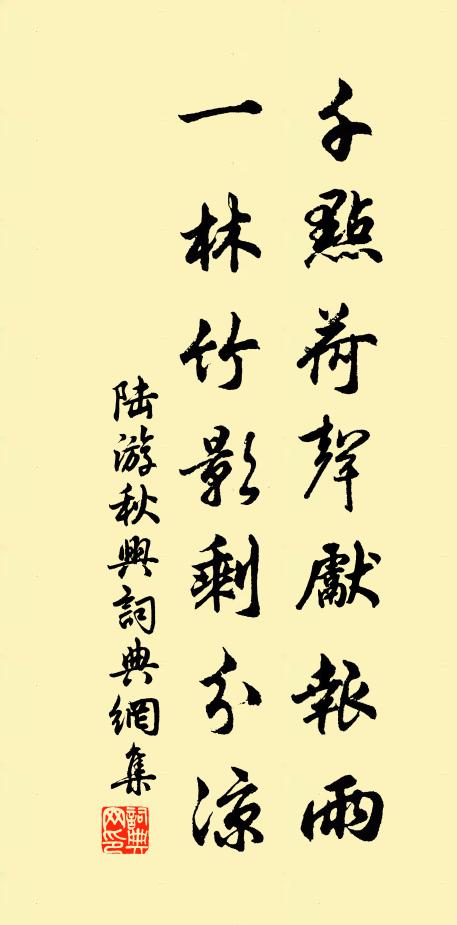 千點荷聲獻報雨
一林竹影剩分涼
陸游秋興詞典網集
詞典网印